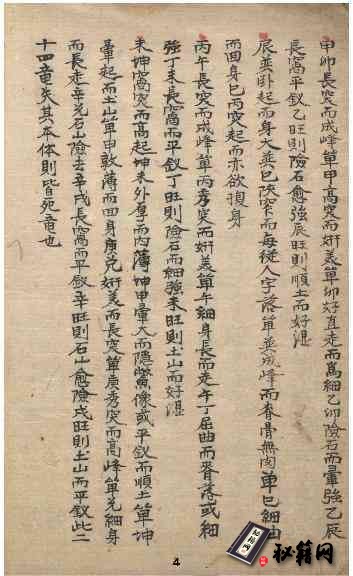 甲卯長突而成峰單甲高突而妍美單卯好直走而萬細乙卯險石而暈強乙辰
長窩平釵乙旺則險石愈強辰旺則順土而好湛
辰巽卧起而身大巽巳陜窄而每従人字落單巽成峰而脊骨無肉單巳細曲
而回身巳丙突起而亦欲損身
丙午長突而成峰單丙秀突而妍美單午細身長而走午丁屈曲而脊落或細
強丁未長窩而平釵丁旺則險石而細強未旺則土山而好湛
未坤窩突而高起坤未外厚而内薄坤申暈大而隱鱉像或平釵而順土單坤
暈起而土山單申敦薄而回身庚兌妍美而長突單庚秀突而高峰單兌細身
而長走辛兌石山險去辛戌長窩而平釵辛旺則石山愈險戌旺則土山而平釵此二
十四竜失其本体則皆死竜也
4
秘籍网